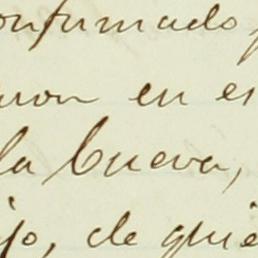 confirmado
en es
la Cueva,
jo, de quie